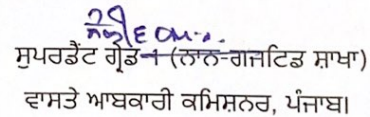 ਸੁਪਰਡੈਂਟ ਗ੍ਰੇਡ-1 (ਨਾਨ-ਗਜਟਿਡ ਸ਼ਾਖਾ)
ਵਾਸਤੇ ਆਬਕਾਰੀ ਕਮਿਸ਼ਨਰ, ਪੰਜਾਬ।